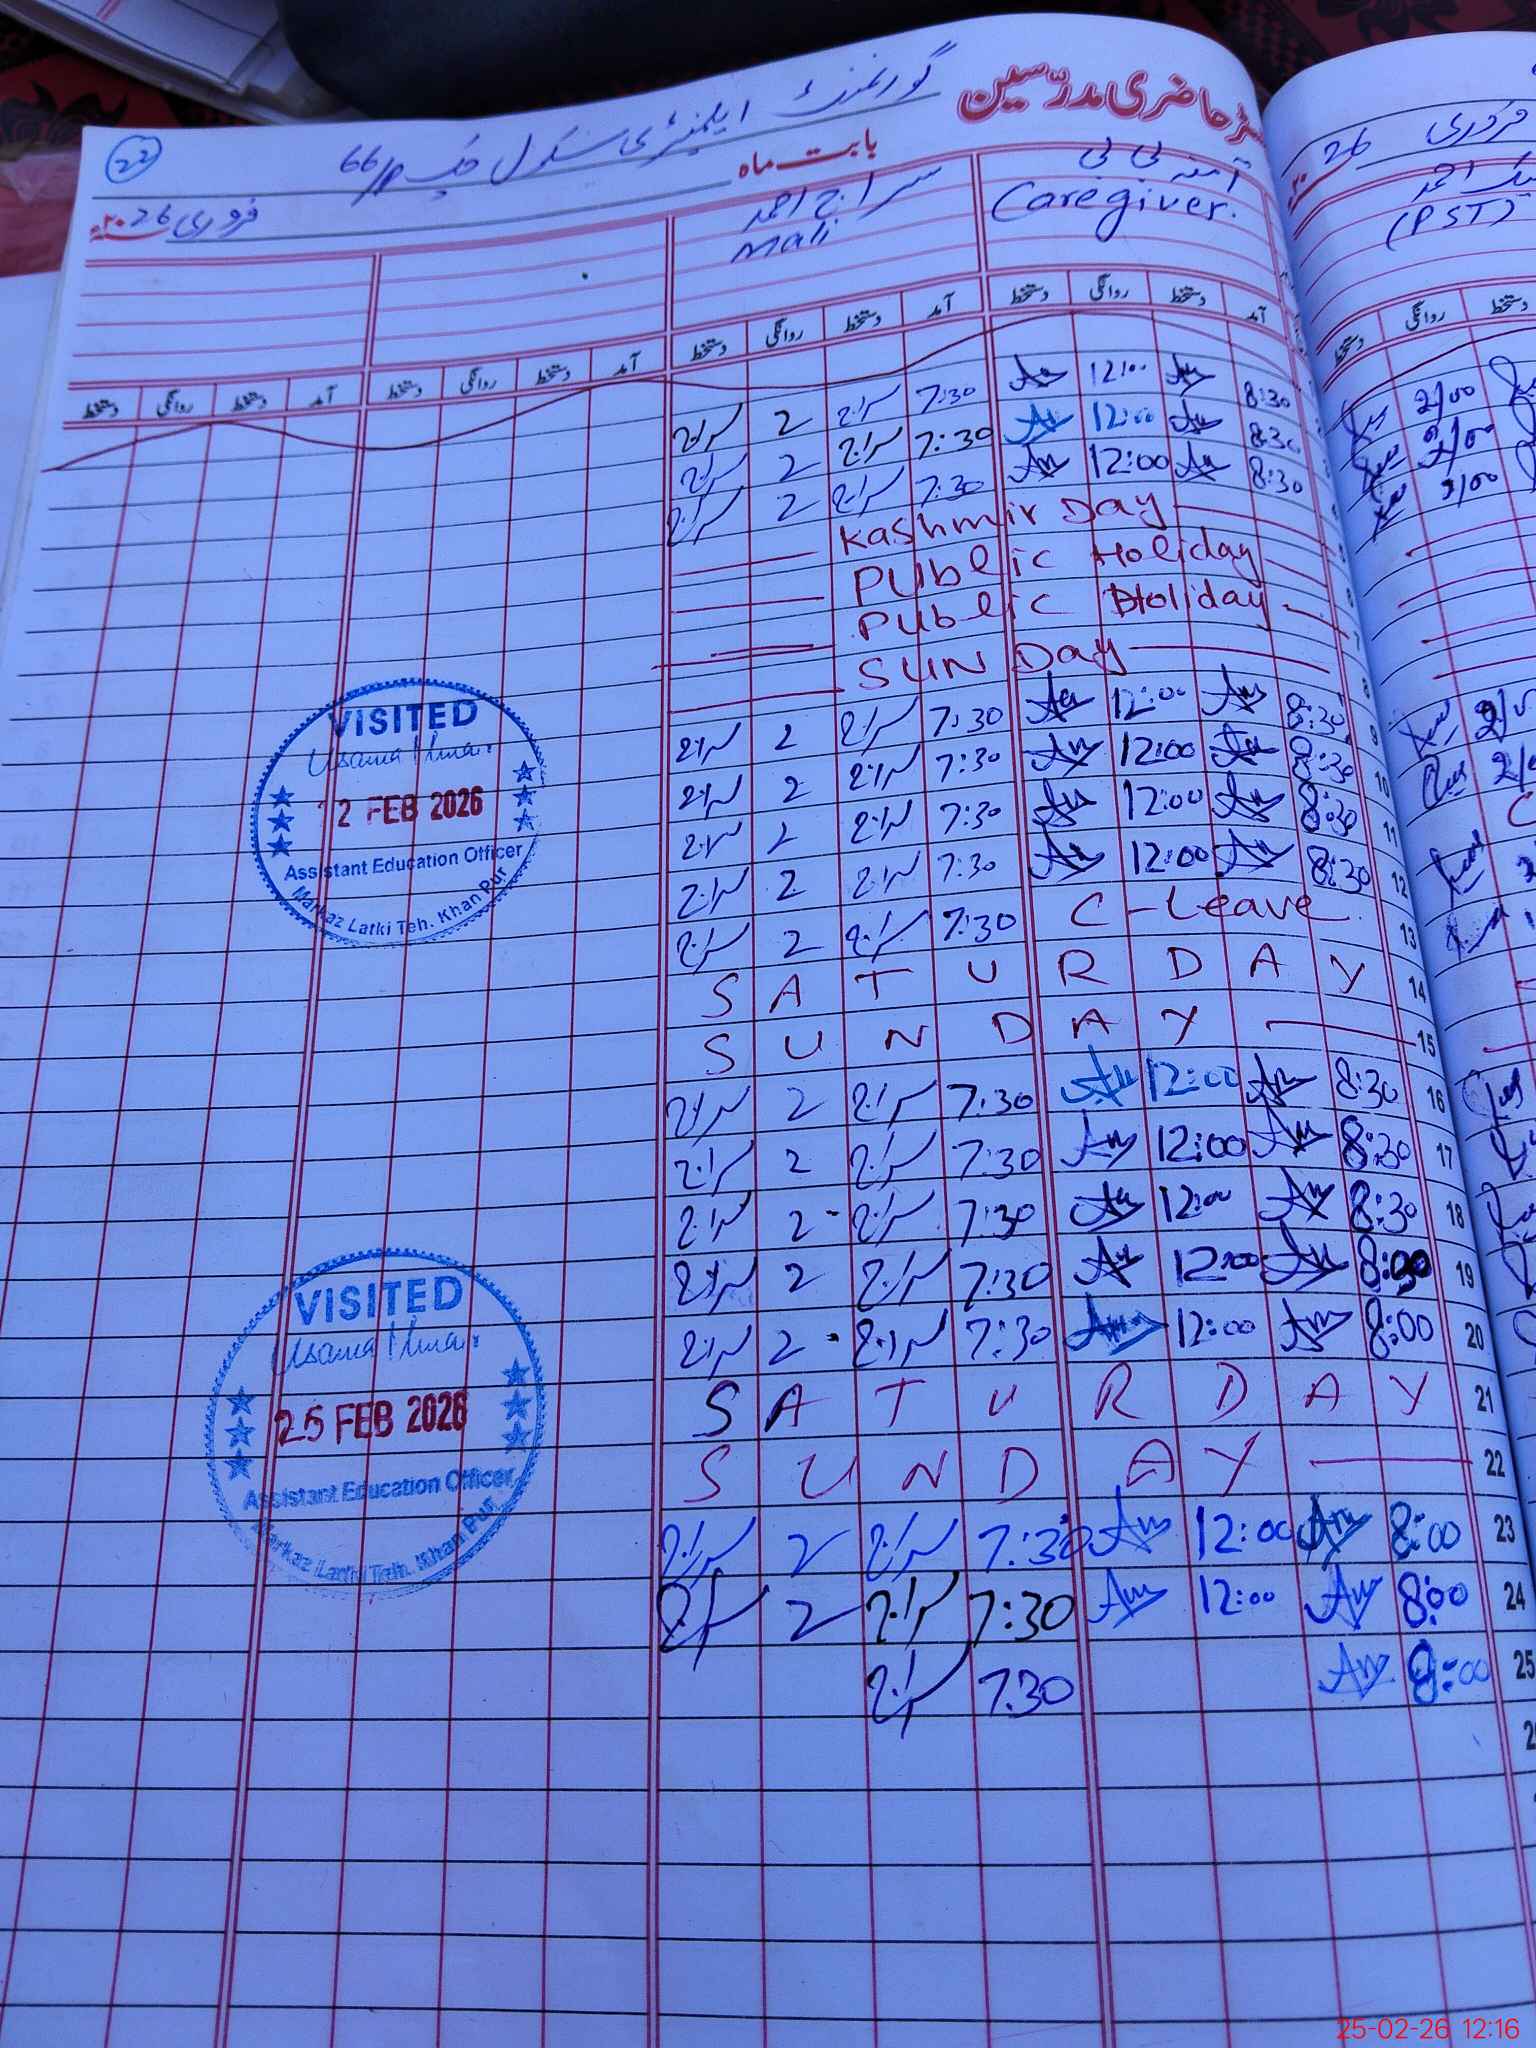 رجسٹر حاضری مدرّسین
گورنمنٹ ایلیمنٹری سکول
66/P
بابت ماہ
22
فروری 2026
سراج احمد
Mali
آمنہ بی بی
Caregiver.
دستخط روانگی دستخط آمد دستخط روانگی دستخط آمد دستخط روانگی دستخط آمد دستخط روانگی دستخط آمد
سراج 2 سراج 7:30 12:00 8:30
سراج 2 سراج 7:30 12:00 8:30
سراج 2 سراج 7:30 12:00 8:30
Kashmir Day
Public Holiday
Public Holiday
SUN Day
سراج 2 سراج 7:30 12:00 8:30 9
سراج 2 سراج 7:30 12:00 8:30 10
سراج 2 سراج 7:30 12:00 8:30 11
سراج 2 سراج 7:30 12:00 8:30 12
سراج 2 سراج 7:30 C-Leave 13
SATURDAY 14
SUNDAY 15
سراج 2 سراج 7:30 12:00 8:30 16
سراج 2 سراج 7:30 12:00 8:30 17
سراج 2 سراج 7:30 12:00 8:30 18
سراج 2 سراج 7:30 12:00 19
سراج 2 سراج 7:30 12:00 8:00 20
SATURDAY 21
SUNDAY 22
سراج 2 سراج 7:30 12:00 8:00 23
سراج 2 سراج 7:30 12:00 8:00 24
سراج 7:30 8:00 25
VISITED
Usama Umar
12 FEB 2026
Assistant Education Officer
Markaz Latki Teh. Khan Pur
VISITED
Usama Umar
25 FEB 2026
Assistant Education Officer
Markaz Latki Teh. Khan Pur
فروری 26
(PST)
روانگی دستخط
2/00
2/00
2/00
25-02-26 12:16